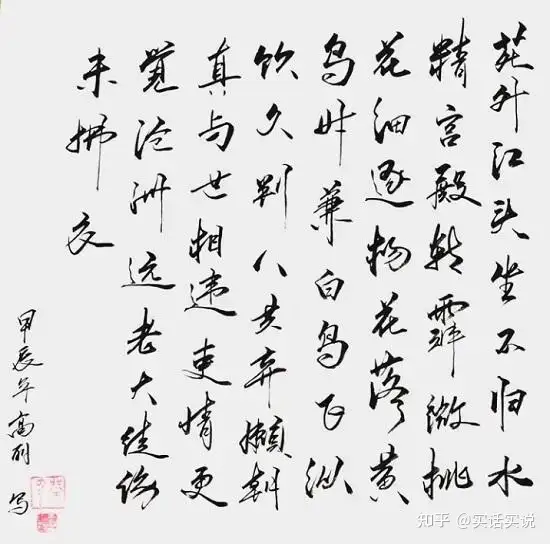 苑外江头坐不归水
精宫殿转霏微桃
花细逐杨花落黄
鸟时兼白鸟飞纵
饮久判人共弃懒朝
真与世相违吏情更
覺沧洲远老大徒伤
未拂衣
甲辰年高 写
知乎 @实话实说